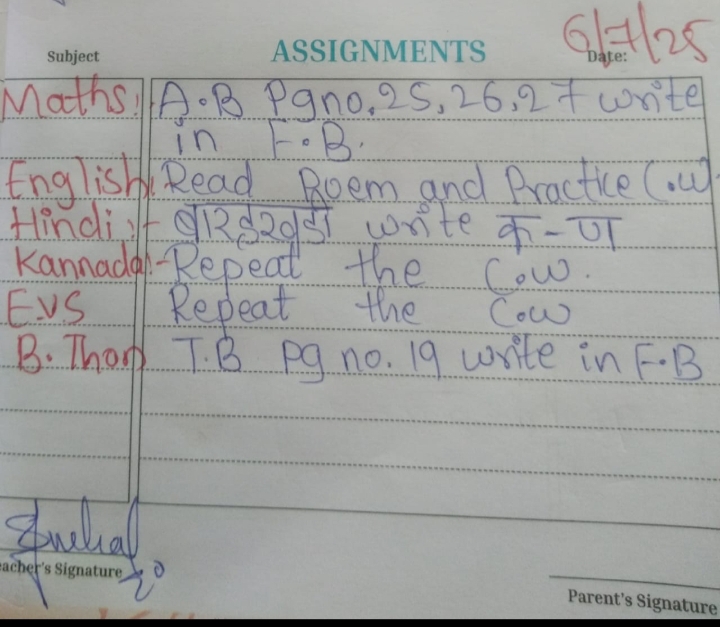 Subject ASSIGNMENTS Date: 6/7/25
Maths: A.B Pg no. 25, 26, 27 write
in F.B.
English: Read Poem and Practice C.W
Hindi:- write क-ण
Kannada:- Repeat the C.w.
EVS Repeat the C.w
B. Thon T.B pg no. 19 write in F.B
eacher's Signature
Parent's Signature